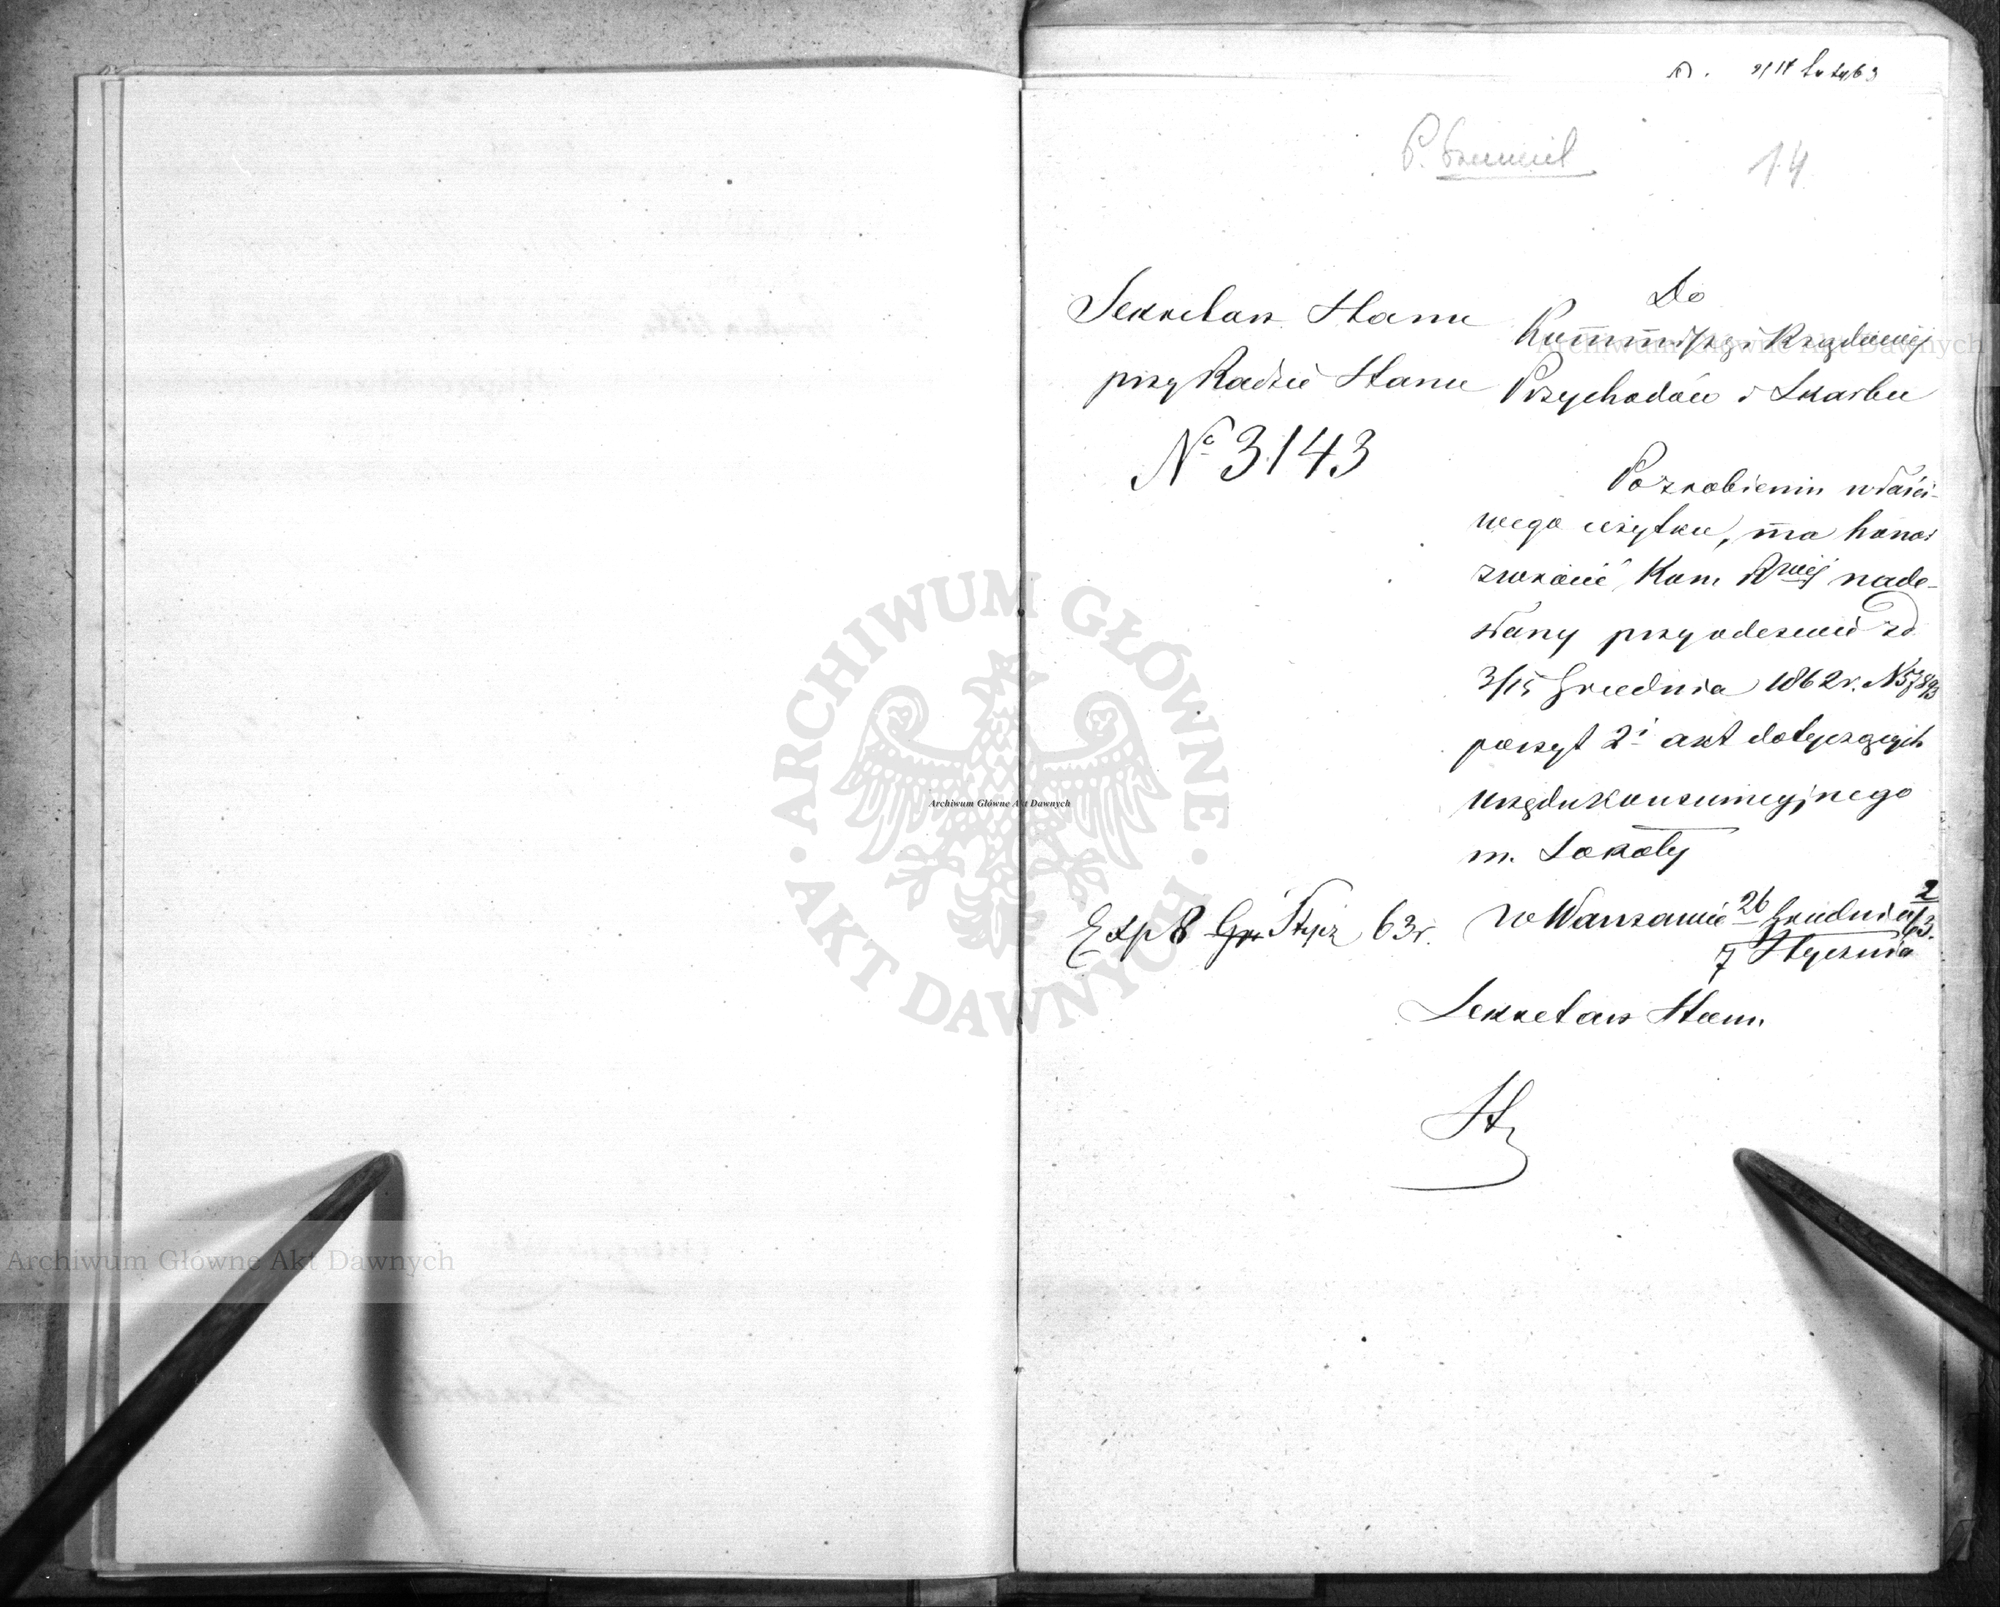 2/14 Luty 63
14
Sekretarz Stanu
przy Radzie Stanu
No 3143
Do
Kommissyi Rządowej
Przychodów i Skarbu
Po zrobieniu właści-
wego użytku, ma honor
zwrócić Kom. Rwej nade-
słany przy odezwie z d.
3/15 Grudnia 1862 r. N
poszyt 2i akt dotyczących
Urzędu Konsumcyjnego
m. Sokoły
w Warszawie 26 Grudnia 2/3
7 Stycznia
Exp 8 Gr Stycz 63 r.
Sekretarz Stanu
ARCHIWUM GŁÓWNE AKT DAWNYCH
Archiwum Główne Akt Dawnych
Archiwum Główne Akt Dawnych
Archiwum Główne Akt Dawnych